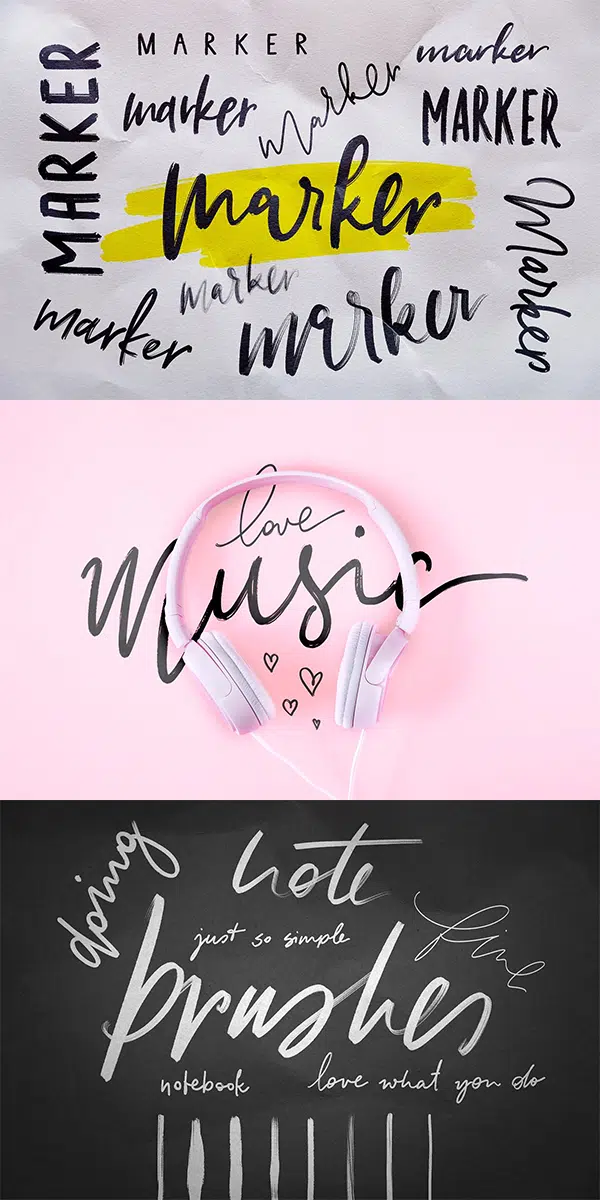 MARKER
MARKER
marker
marker
marker
MARKER
marker
Marker
marker
marker
marker
love
Music
doing
note
just so simple
fine
brushes
notebook
love what you do